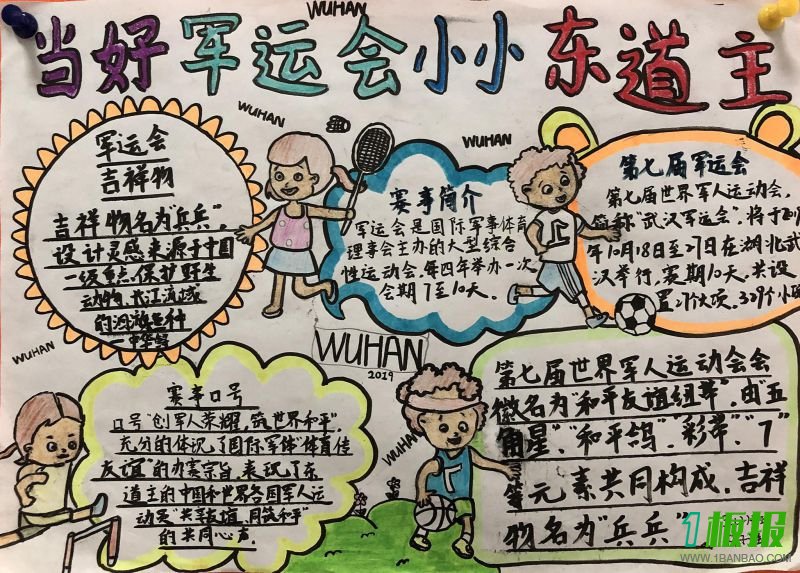 WUHAN
当好军运会小小东道主
WUHAN
WUHAN
军运会
吉祥物
吉祥物名为"兵兵".
设计灵感来源于中国
一级重点保护野生
动物.长江流域
的洄游鱼种
一中华鲟
赛事简介
军运会是国际军事体育
理事会主办的大型综合
性运动会.每四年举办一次
会期7至10天.
第七届军运会
第七届世界军人运动会.
简称"武汉军运会".将于
年10月18日至27日在湖北武
汉举行,赛期10天.共设
置27个大项.329个小
WUHAN
WUHAN
2019
WUHAN
赛事口号
口号"创军人荣耀,筑世界和平".
充分的体现了国际军体"体育传
友谊"的办赛宗旨.表现了东
道主的中国和世界各国军人运
动员"共享友谊.同筑和平"
的共同心声.
WUHAN
第七届世界军人运动会会
徽名为"和平友谊纽带".由"五
角星"."和平鸽"."彩带"."7"
等元素共同构成.吉祥
物名为"兵兵"
1板报
WWW.1BANBAO.COM